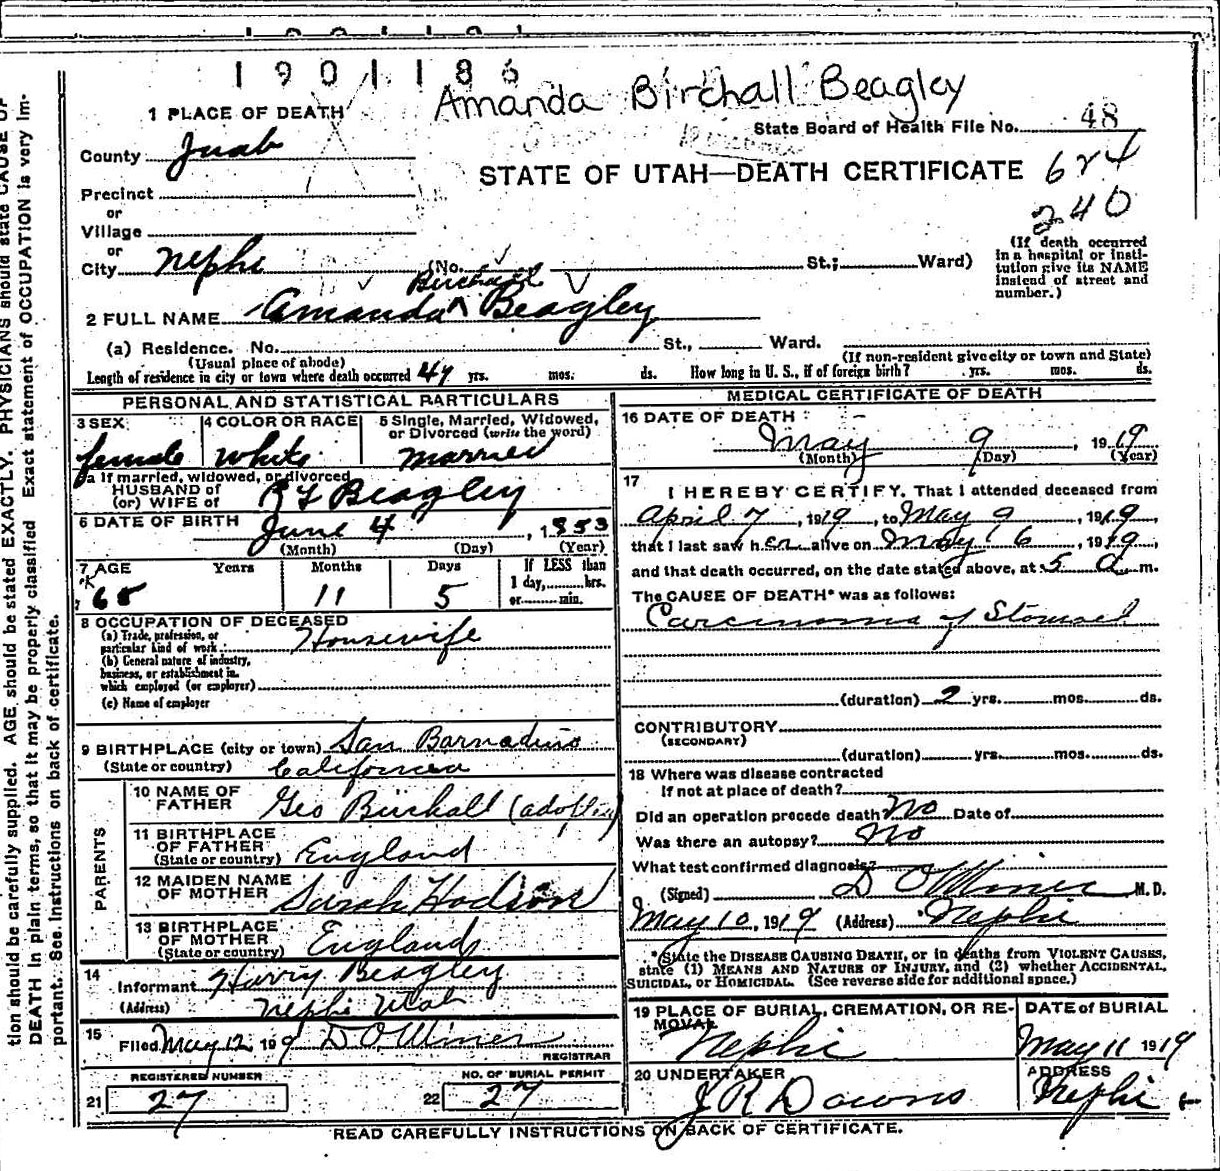 1901186
Amanda Birchall Beagley
1 PLACE OF DEATH
State Board of Health File No. 48
County Juab
STATE OF UTAH—DEATH CERTIFICATE
624
240
Precinct
or
Village
or
City Nephi (No. St.; Ward)
(If death occurred in a hospital or institution give its NAME instead of street and number.)
Birchall
2 FULL NAME Amanda ^ Beagley
(a) Residence. No. St., Ward.
(Usual place of abode) (If non-resident give city or town and State)
Length of residence in city or town where death occurred 47 yrs. mos. ds. How long in U. S., if of foreign birth? yrs. mos. ds.
PERSONAL AND STATISTICAL PARTICULARS
3 SEX 4 COLOR OR RACE 5 Single, Married, Widowed, or Divorced (write the word)
female white married
5a If married, widowed, or divorced
HUSBAND of
(or) WIFE of Beagley
6 DATE OF BIRTH June 4, 1853
(Month) (Day) (Year)
7 AGE Years Months Days If LESS than 1 day, hrs. or min.
65 11 5
8 OCCUPATION OF DECEASED
(a) Trade, profession, or particular kind of work Housewife
(b) General nature of industry, business, or establishment in which employed (or employer)
(c) Name of employer
9 BIRTHPLACE (city or town) San Barnadino
(State or country) California
PARENTS
10 NAME OF FATHER Geo Birchall (adopting)
11 BIRTHPLACE OF FATHER (State or country) England
12 MAIDEN NAME OF MOTHER Sarah Hodson
13 BIRTHPLACE OF MOTHER (State or country) England
14 Informant Harry Beagley
(Address) Nephi Utah
15 Filed May 12, 1919 D O Miner
REGISTRAR
REGISTERED NUMBER NO. OF BURIAL PERMIT
21 27 22 27
MEDICAL CERTIFICATE OF DEATH
16 DATE OF DEATH
May 9, 1919
(Month) (Day) (Year)
17 I HEREBY CERTIFY, That I attended deceased from
April 7, 1919, to May 9, 1919,
that I last saw her alive on May 6, 1919,
and that death occurred, on the date stated above, at 5 a m.
The CAUSE OF DEATH* was as follows:
Carcinoma of Stomach
(duration) 2 yrs. mos. ds.
CONTRIBUTORY
(SECONDARY)
(duration) yrs. mos. ds.
18 Where was disease contracted
If not at place of death?
Did an operation precede death No Date of
Was there an autopsy? No
What test confirmed diagnosis?
(Signed) D O Miner M. D.
May 10, 1919 (Address) Nephi
*State the DISEASE CAUSING DEATH, or in deaths from VIOLENT CAUSES, state (1) MEANS AND NATURE OF INJURY, and (2) whether ACCIDENTAL, SUICIDAL, or HOMICIDAL. (See reverse side for additional space.)
19 PLACE OF BURIAL, CREMATION, OR REMOVAL DATE of BURIAL
Nephi May 11 1919
20 UNDERTAKER ADDRESS
J R Downs Nephi
READ CAREFULLY INSTRUCTIONS ON BACK OF CERTIFICATE.
tion should be carefully supplied. AGE should be stated EXACTLY. PHYSICIANS should state CAUSE OF
DEATH in plain terms, so that it may be properly classified. Exact statement of OCCUPATION is very Im-
portant. See Instructions on back of certificate.